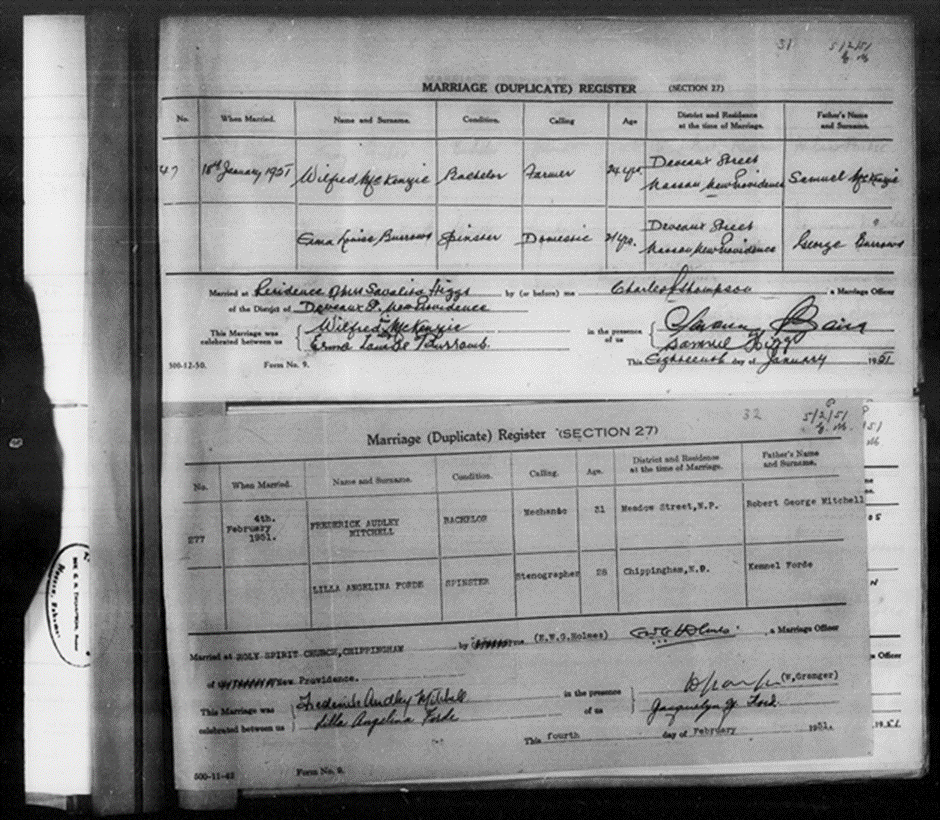 31 5/2/51
MARRIAGE (DUPLICATE) REGISTER (SECTION 27)
No. When Married. Name and Surname. Condition. Calling Age District and Residence at the time of Marriage. Father's Name and Surname.
47 18th January 1951 Wilfred McKenzie Bachelor Farmer 24 yrs. Deveaux Street Nassau New Providence Samuel McKenzie
Erma Louise Burrows Spinster Domestic 21 yrs. Deveaux Street Nassau New Providence George Burrows
Married at Residence of Mrs Higgs by (or before) me Charles Thompson, a Marriage Officer
of the District of Deveaux St. New Providence
This Marriage was celebrated between us Wilfred McKenzie in the presence of us Bain
Erma Louise Burrows Samuel Higgs
This Eighteenth day of January 1951
500-12-50. Form No. 9.
32 5/2/51
Marriage (Duplicate) Register (SECTION 27)
No. When Married. Name and Surname. Condition. Calling. Age. District and Residence at the time of Marriage. Father's Name and Surname.
277 4th. February 1951. FREDERICK AUDLEY MITCHELL BACHELOR Mechanic 31 Meadow Street, N.P. Robert George Mitchell
LILLA ANGELINA FORDE SPINSTER Stenographer 28 Chippingham, N.P. Kemnel Forde
Married at HOLY SPIRIT CHURCH, CHIPPINGHAM by me (E.W.G.Holmes), a Marriage Officer
of New Providence.
This Marriage was celebrated between us Frederick Audley Mitchell in the presence of us (W.Granger)
Lilla Angelina Forde Jacquelyn Y. Ford.
This fourth day of February 1951.
500-11-42 Form No. 9.